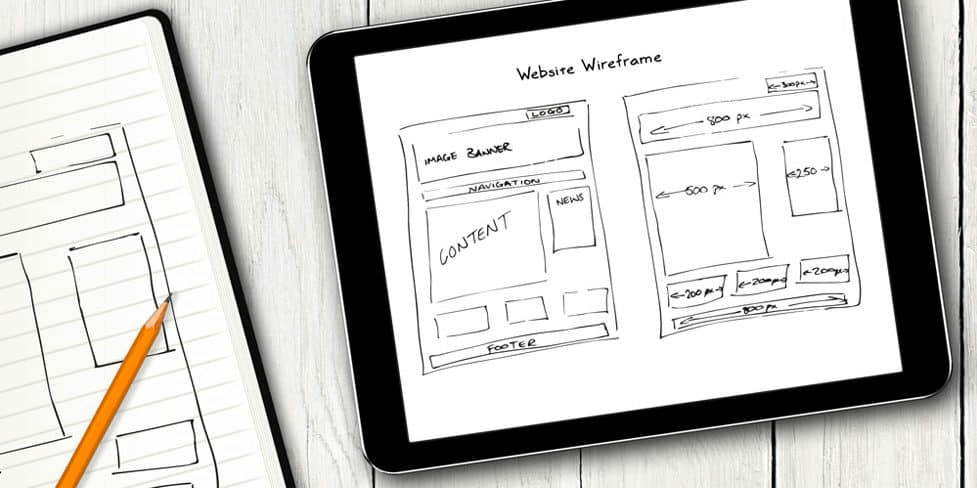 Website Wireframe
LOGO
IMAGE BANNER
NAVIGATION
CONTENT
NEWS
FOOTER
300px
800 px
500 px
250
200 px
200px
200px
800 px